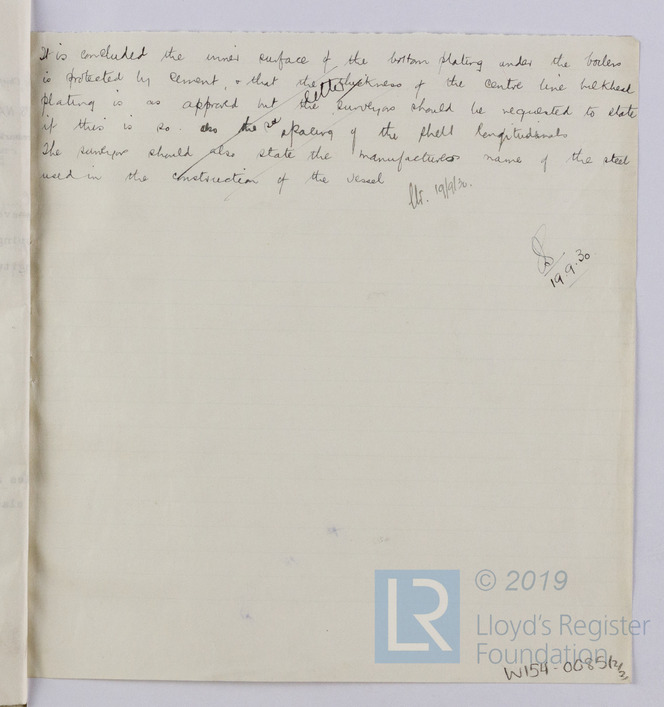 It is concluded the inner surface of the bottom plating under the boilers
is protected by cement, & that the thickness of the centre line bulkhead
Letter
plating is as approved but the surveyors should be requested to state
if this is so. also the spacing of the shell longitudinals
The surveyor should also state the manufacturers name of the steel
used in the construction of the vessel
19/9/30.
19.9.30
LR
© 2019
Lloyd's Register
Foundation
W154-0085